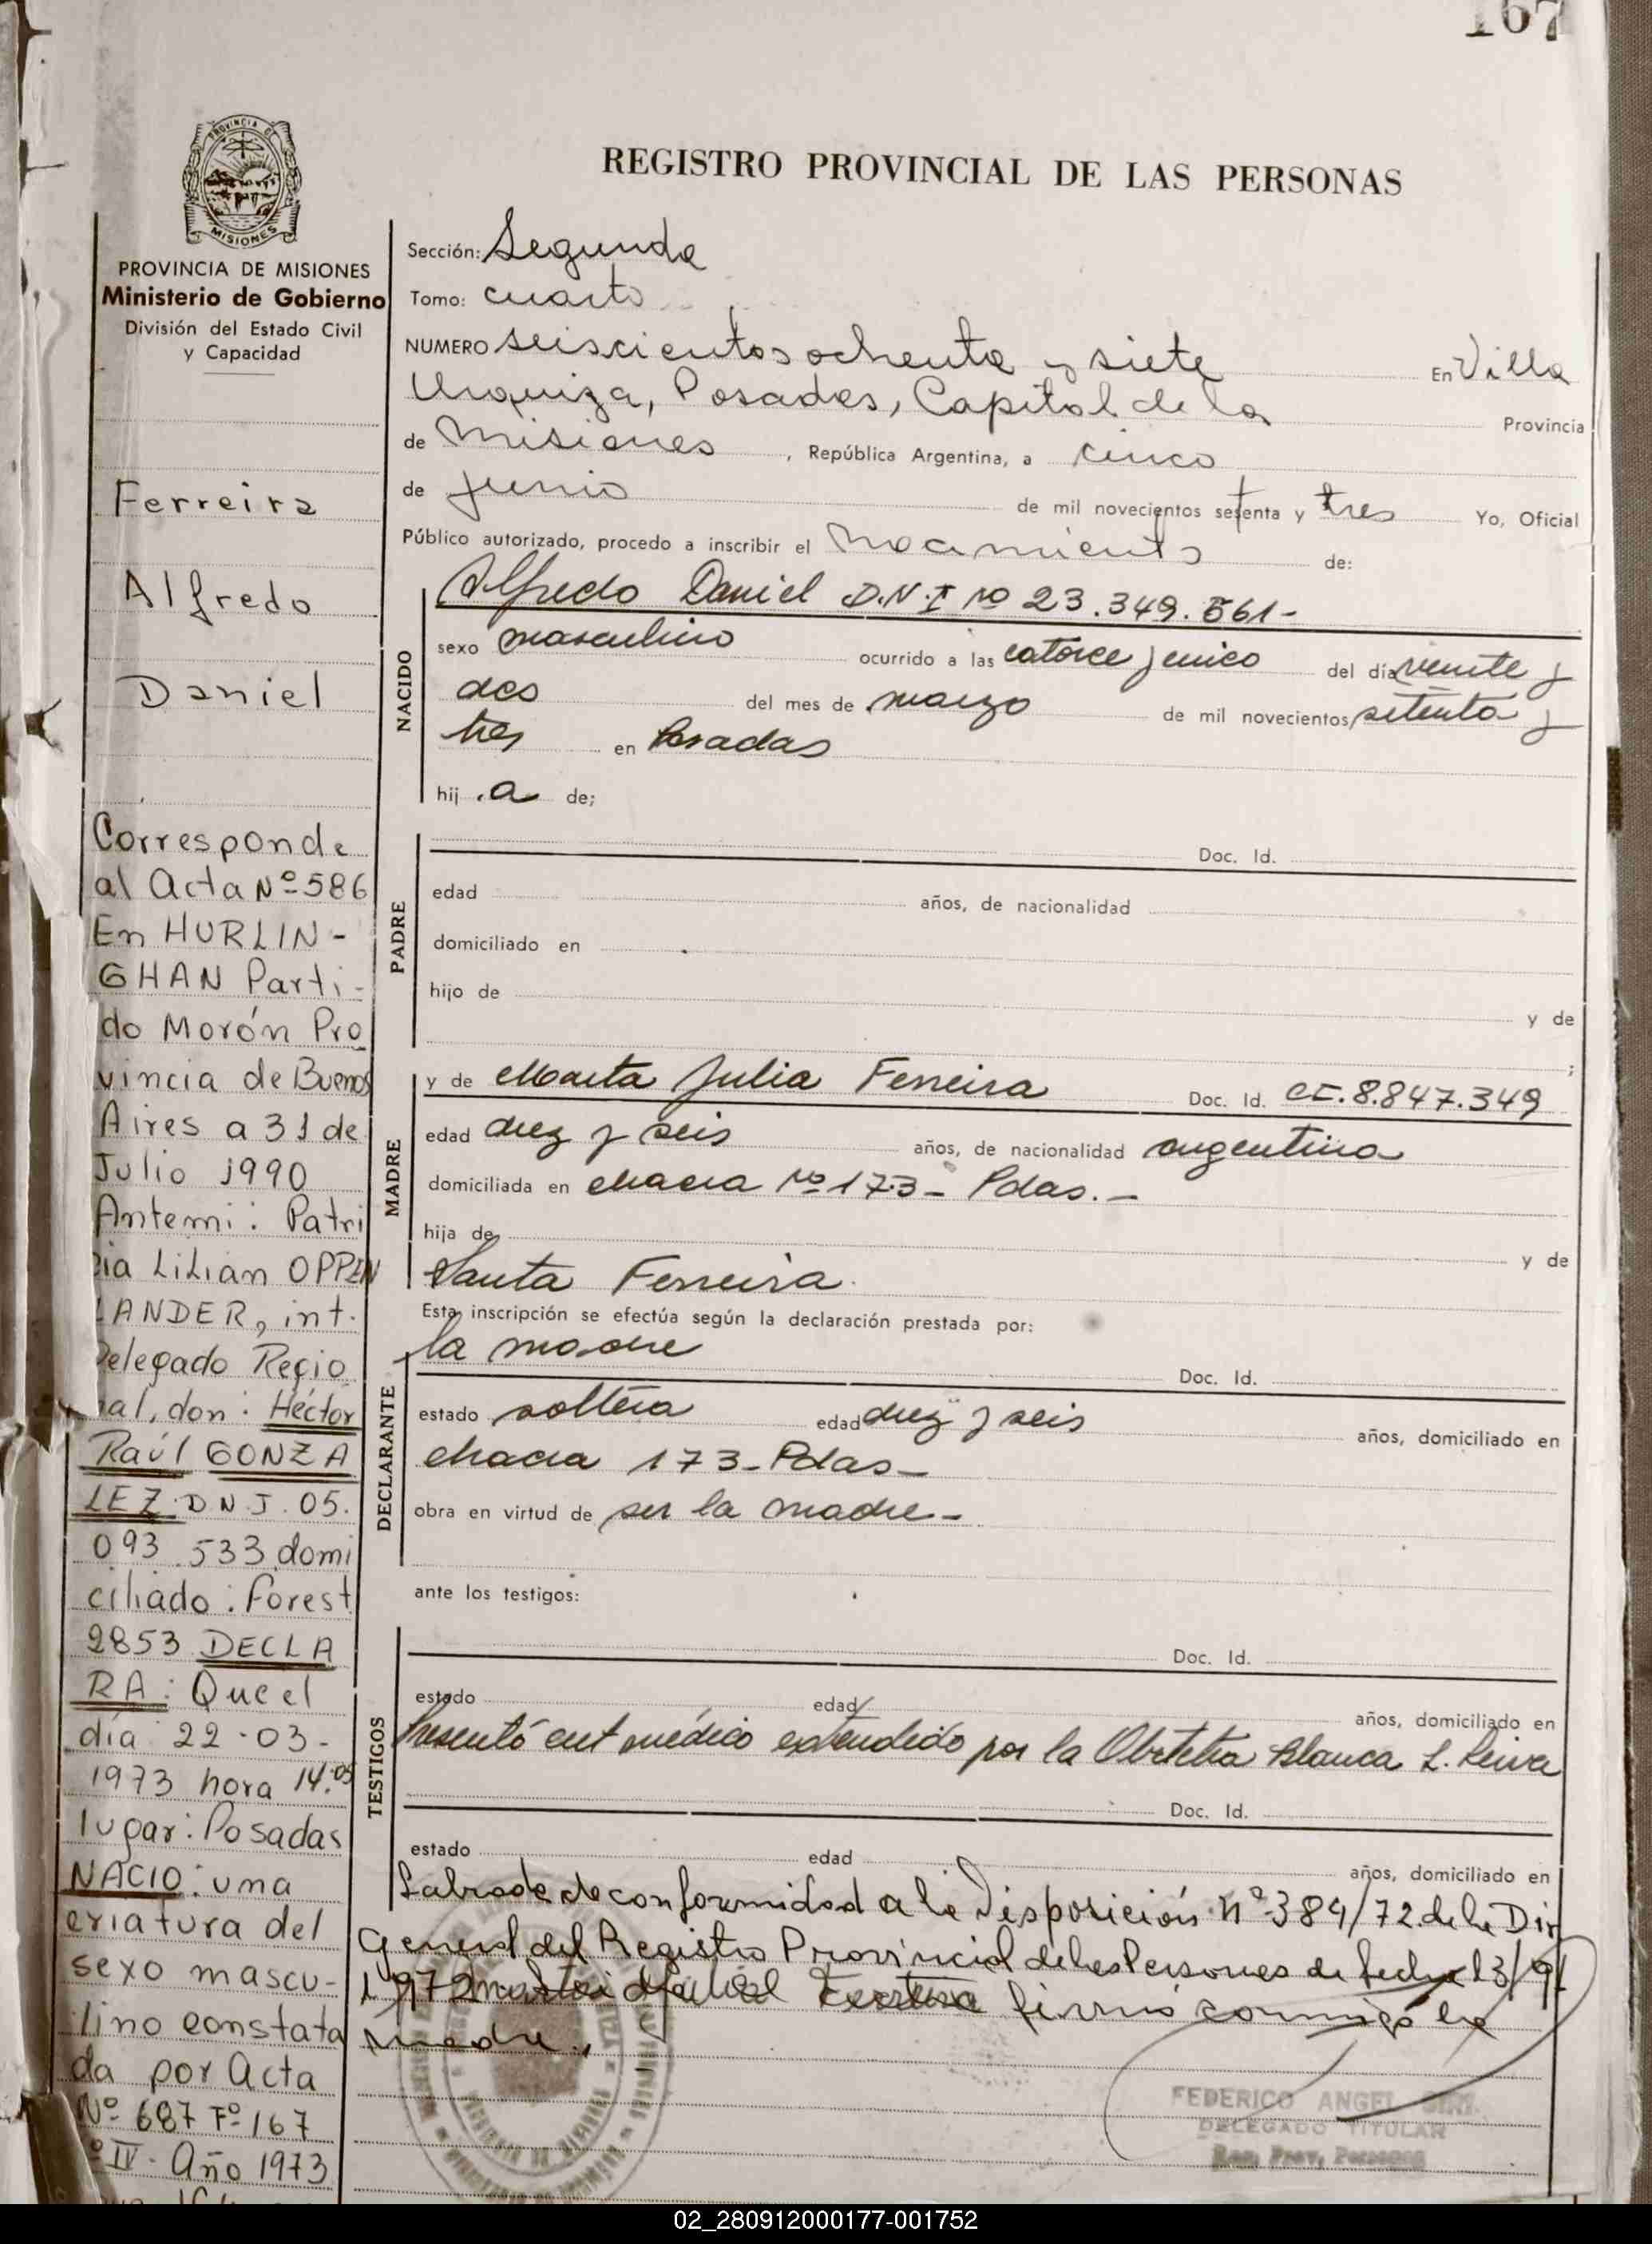 167
PROVINCIA DE MISIONES
Ministerio de Gobierno
División del Estado Civil
y Capacidad
Ferreira
Alfredo
Daniel
Corresponde
al Acta Nº 586
En HURLIN-
GHAN Parti-
do Morón Pro
vincia de Buenos
Aires a 31 de
Julio 1990
Antemi: Patri
cia LiLian OPPEN
LANDER, int.
Delegado Regio
nal, don: Héctor
Raúl GONZA
LEZ D N J. 05.
093.533 domi
ciliado: Forest
2853 DECLA
RA: Que el
día 22-03-
1973 hora 14:05
lugar: Posadas
NACIO: una
criatura del
sexo mascu-
lino constata
da por Acta
Nº 687 Fº 167
º IV- Año 1973
REGISTRO PROVINCIAL DE LAS PERSONAS
Sección: Segunda
Tomo: cuarto
NUMERO seiscientos ochenta y siete En Villa
Urquiza, Posadas, Capital de la Provincia
de Misiones, República Argentina, a cinco
de junio de mil novecientos setenta y tres Yo, Oficial
Público autorizado, procedo a inscribir el Nacimiento de:
NACIDO
Alfredo Daniel D.N.I Nº 23.349.561-
sexo masculino ocurrido a las catorce y cinco del día veinte y
dos del mes de marzo de mil novecientos setenta y
tres en Posadas
hij a de;
PADRE
Doc. Id.
edad años, de nacionalidad
domiciliado en
hijo de y de
;
MADRE
y de Marta Julia Ferreira Doc. Id. CI. 8.847.349
edad diez y seis años, de nacionalidad argentina
domiciliada en chacra Nº 173- Pdas.-
hija de y de
Santa Ferreira
Esta inscripción se efectúa según la declaración prestada por:
DECLARANTE
la madre Doc. Id.
estado soltera edad diez y seis años, domiciliado en
chacra 173-Pdas-
obra en virtud de ser la madre-
ante los testigos:
TESTIGOS
Doc. Id.
estado edad años, domiciliado en
Presentó cert médico extendido por la Obstetra Blanca L. Leiva
Doc. Id.
estado edad años, domiciliado en
Labrada de conformidad a la Disposición Nº 384/72 de la Dir
General del Registro Provincial de las Personas de fecha 13/9/
1972 firmó conmigo la
madre.,
FEDERICO ANGEL
DELEGADO TITULAR
Reg. Prov. Personas
02_280912000177-001752